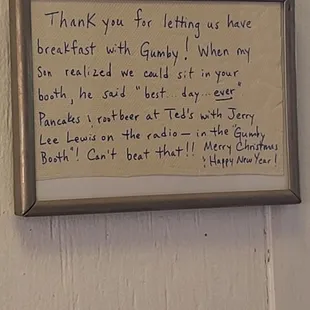 Thank you for letting us have
breakfast with Gumby! When my
son realized we could sit in your
booth, he said "best... day... ever"
Pancakes & rootbeer at Ted's with Jerry
Lee Lewis on the radio — in the "Gumby
Booth"! Can't beat that!! Merry Christmas
& Happy New Year!